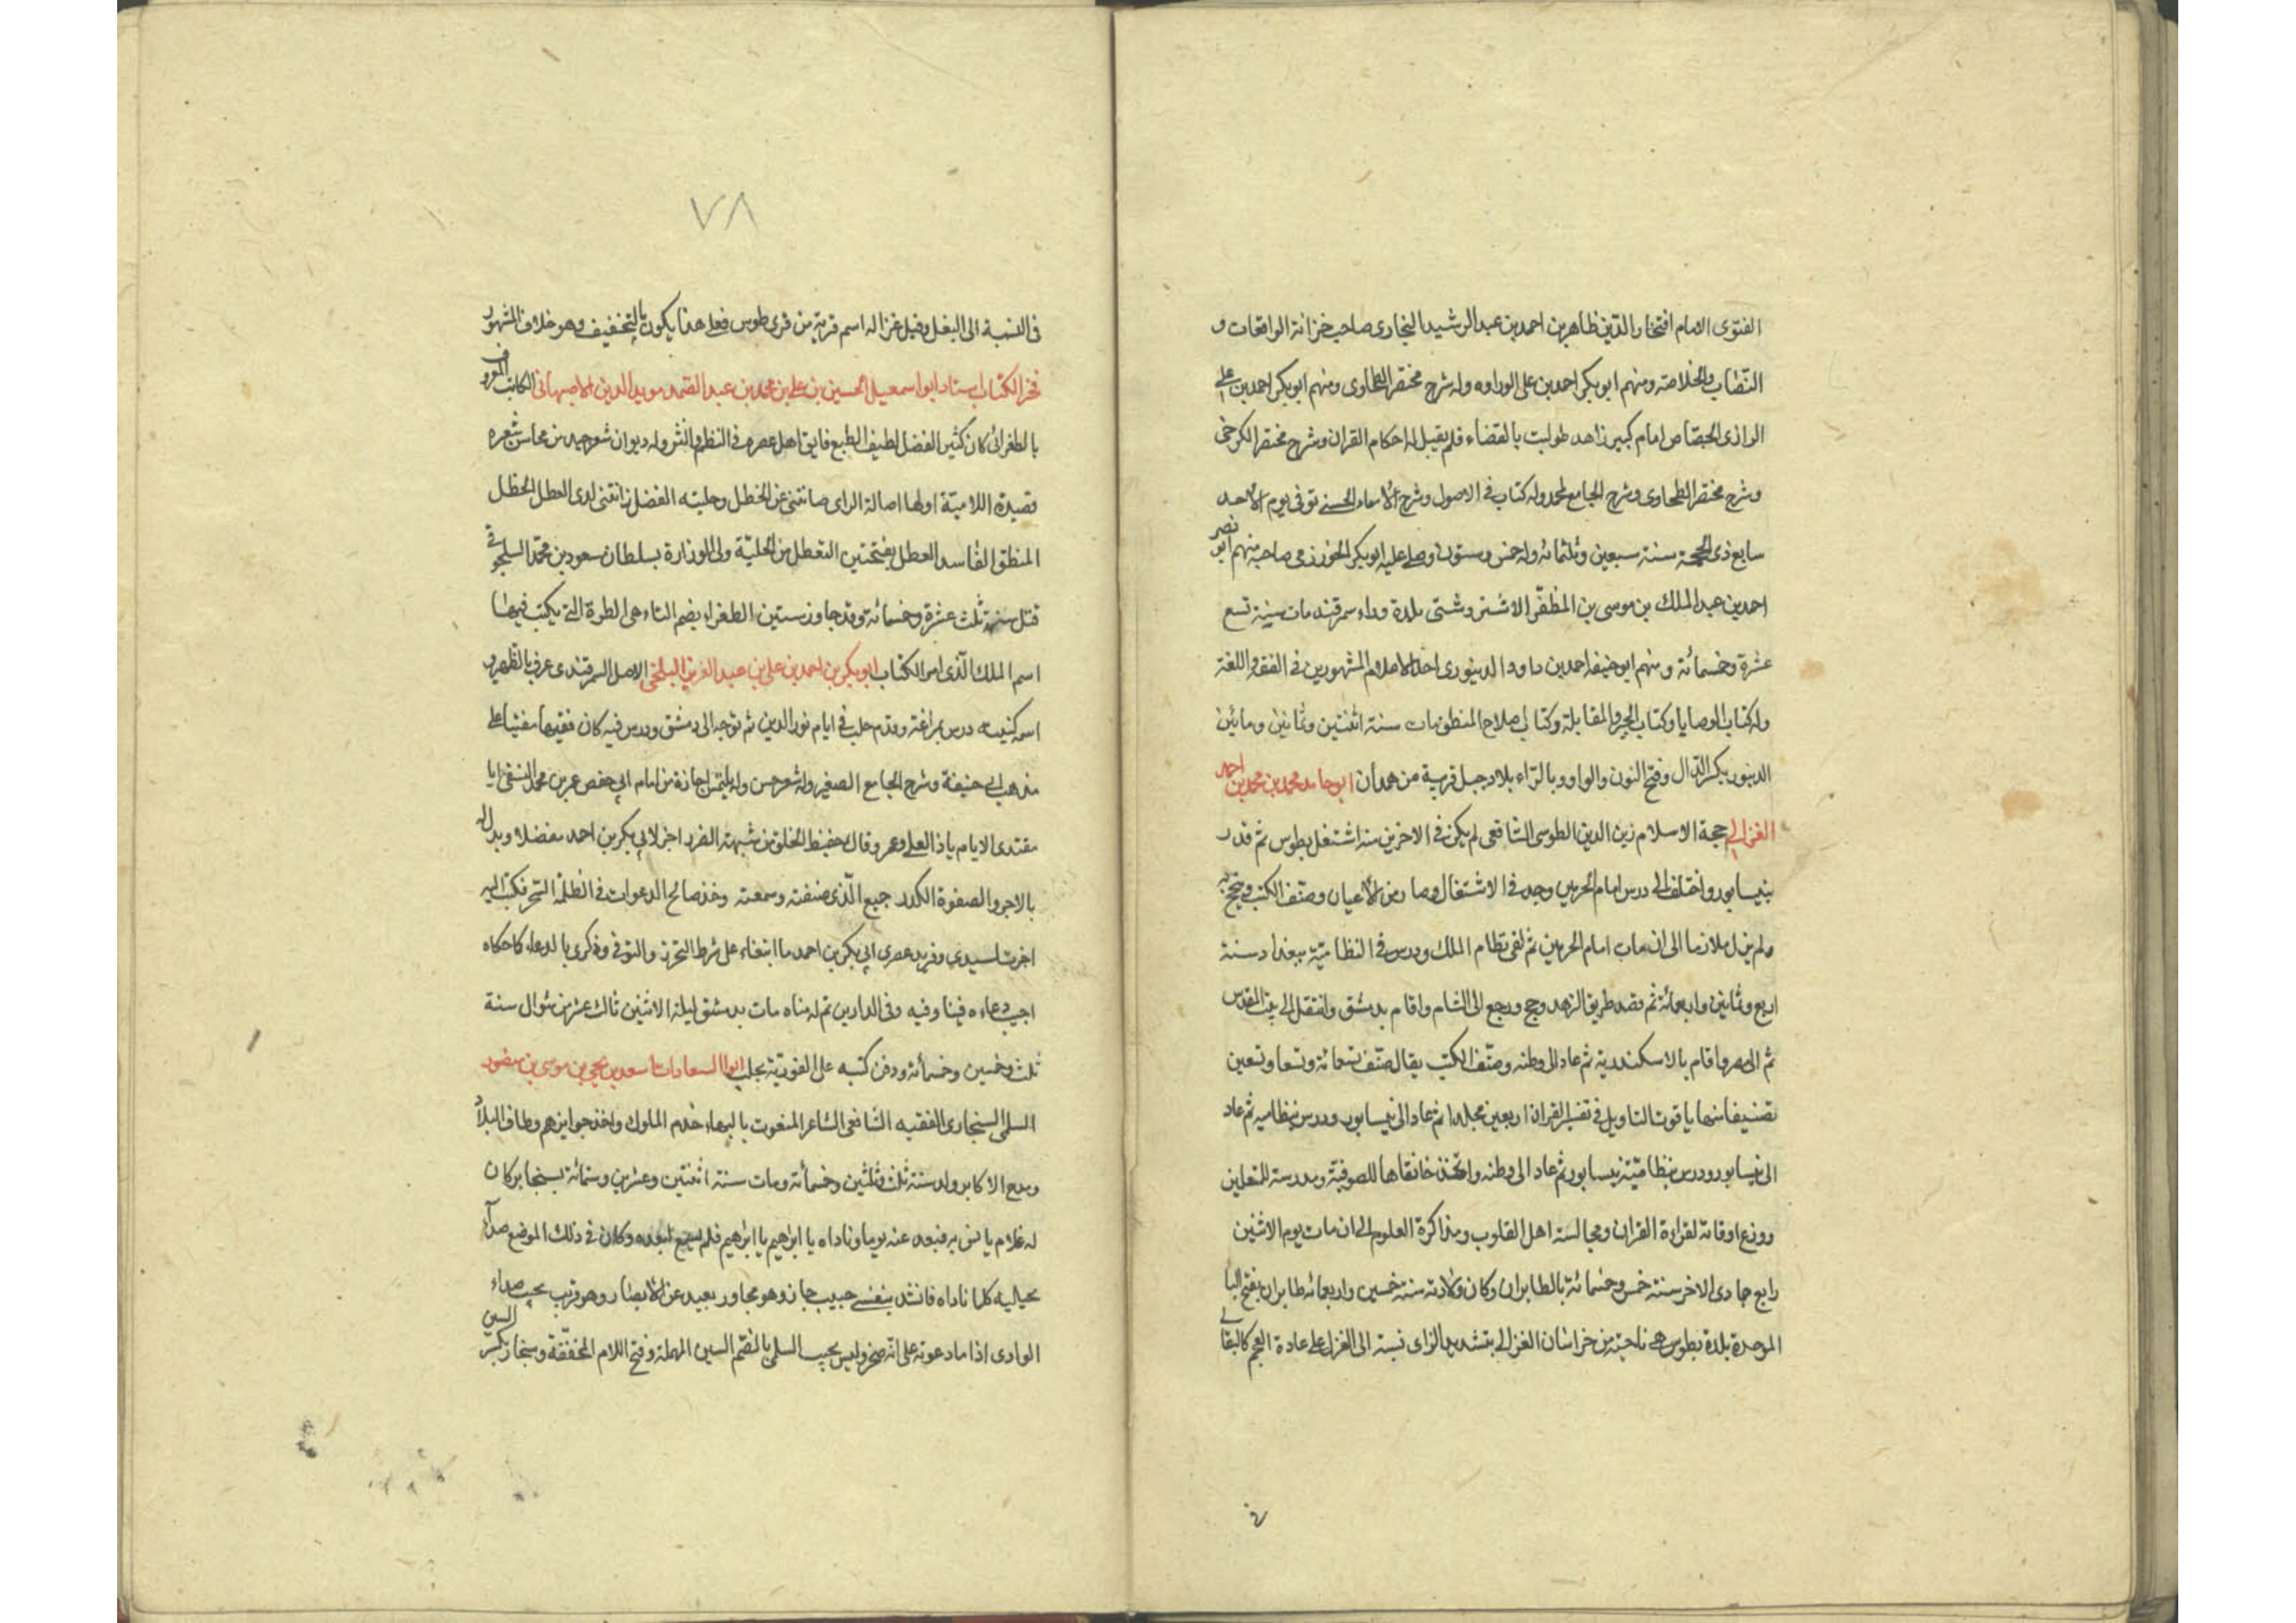 الفتوى الامام افتخار الدين طاهر بن احمد بن عبد الرشيد البخارى صاحب خزانة الواقعات و
النصاب والخلاصة ومنهم ابو بكر احمد بن على الوراوه وله شرح مختصر الطحاوى ومنهم ابو بكر احمد بن على
الرازى الجصاص امام كبير زاهد طولبت بالقضاء فلم يقبل له احكام القران وشرح مختصر الكرخى
وشرح مختصر الطحاوى وشرح الجامع لمحمد وله كتاب فى الاصول وشرح الأسماء الحسنى توفى يوم الأحد
سابع ذى الحجة سنة سبعين وثلثمائه وله خمس وستون وصلى عليه ابو بكر الخوارزمى صاحبه منهم ابو نصر
احمد بن عبد الملك بن موسى بن المظفر الاشتر وشتى بلدة وراء سمرقند مات سنة تسع
عشرة وخمسمائة ومنهم ابو حنيفه احمد بن داود الدينورى احد الاعلام المشهورين فى الفقه واللغة
وله كتاب الوصايا وكتاب الجبر والمقابلة وكتاب اصلاح المنطق مات سنة اثنتين وثمانين ومائتين
الدينور بكسر الدال وفتح النون والواو وبالراء بلاد جبل قريبة من همدان ابو حامد محمد بن محمد بن احمد
الغزالى حجة الاسلام زين الدين الطوسى الشافعى لم يكن فى الاخر من اشتغل بطوس ثم قدر
بنيسابور واختلف الى درس امام الحرمين وجد فى الاشتغال وصار من الأعيان وصنف الكتب
ولم يزل ملازما الى ان مات امام الحرمين ثم لقى نظام الملك ودرس فى النظامية ببغداد سنة
اربع وثمانين واربعمائة ثم قصد طريق الزهد وحج ورجع الى الشام واقام بدمشق وانتقل الى بيت المقدس
ثم الى مصر واقام بالاسكندرية ثم عاد الى وطنه وصنف الكتب يقال صنف تسعمائة وتسعا وتسعين
تصنيفا منها ياقوت التاويل فى تفسير القران اربعين مجلدا ثم عاد الى نيسابور ودرس بنظاميه ثم عاد
الى نيسابور ودرس بنظامية نيسابور ثم عاد الى وطنه واتخذ خانقاها للصوفية ومدرسة للمتعلمين
ووزع اوقاته لقراءة القران ومجالسة اهل القلوب ومذاكرة العلوم الى ان مات يوم الاثنين
رابع جمادى الاخر سنة خمس وخمسمائة بالطابران وكان ولادته سنة خمسين واربعمائه طابران بفتح البا
الموحدة بلدة بطوس هى ناحية من خراسان الغزالى بتشديد الزاى نسبة الى الغزل على عادة العجم كالبقالى
٧٨
فى النسبة الى البغل وقيل غزاله اسم قرية من قرى طوس فعلى هذا يكون بالتخفيف وهو خلاف المشهور
فخر الكتاب استاد ابو اسمعيل الحسين بن على بن محمد بن عبد الصمد مويد الدين الاصبهانى الكاتب المعروف
بالطغرائى كان كثير الفضل لطيف الطبع فايق اهل عصره فى النظم والنثر وله ديوان شعر جيد من محاسن شعره
قصيدة اللامية اولها اصالة الراى صانتنى عن الخطل وحليته الفضل زانتنى لدى العطل الخطل
المنطق الفاسد العطل بفتحتين التعطل من الحلية ولى الوزارة بسلطان مسعود بن محمد السلجوقى
قتل سنة ثلث عشرة وخمسمائة وقد جاوز ستين الطغراء بضم الطاء هى الطرة التى يكتب فيها
اسم الملك الذى امر الكتاب ابو بكر بن احمد بن على بن عبد العزيز البلخى الاصل السمرقندى عرف بالظهير و
اسمه كنيته درس بمراغة وقدم حلب فى ايام نور الدين ثم توجه الى دمشق ودرس فيه كان فقيها مفتيا على
مذهب ابى حنيفة وشرح الجامع الصغير وله شعر حسن وله يلتمس اجازة من امام ابى حفص عمر بن محمد النسفى ايا
مقتدى الايام ياذا العلى وعمر وقال حفيظ الخلق من شبهته الضرر اجز لابى بكر بن احمد مفضلا وبدله
بالاجر والصفوة الكدر جميع الذى صنفته وسمعته وخذ صالح الدعوات فى الظلمة السحر فكتب اليه
اجزت لسيدى وفريد عصرى ابى بكر بن احمد ما ابتغاء على شرط التحرز والتوقى وذكرى بالدعاء كما حكاه
اجيب دعاءه فينا وفيه وفى الدارين تم له مناه مات بدمشق ليلة الاثنين ثالث عشر من شوال سنة
ثلث وخمسين وخمسمائة ودفن كتبه على الفورية بحلب ابوا السعادات اسعد بن يحيى بن موسى بن منصور
السلمى السنجارى الفقيه الشافعى الشاعر المنعوت بالبهاء خدم الملوك واخذ جوايزهم وطاف البلاد
ومدح الاكابر ولد سنة ثلث وثلثين وخمسمائة ومات سنة اثنتين وعشرين وستمائة بسنجار كان
له غلام يانس به فبعد عنه يوما وناداه يا ابراهيم يا ابراهيم فلم يسمع لبعده وكان فى ذلك الموضع صداء
بحياليه كلما ناداه فانشد بنفسى حبيب جاز وهو مجاور بعيد عن الابصار وهو قريب يجيب صداء
الوادى اذا ما دعوته على انه صخر وليس يجيب السلمى بالضم السين المهملة وفتح اللام المخففة وسنجار بكسر السين